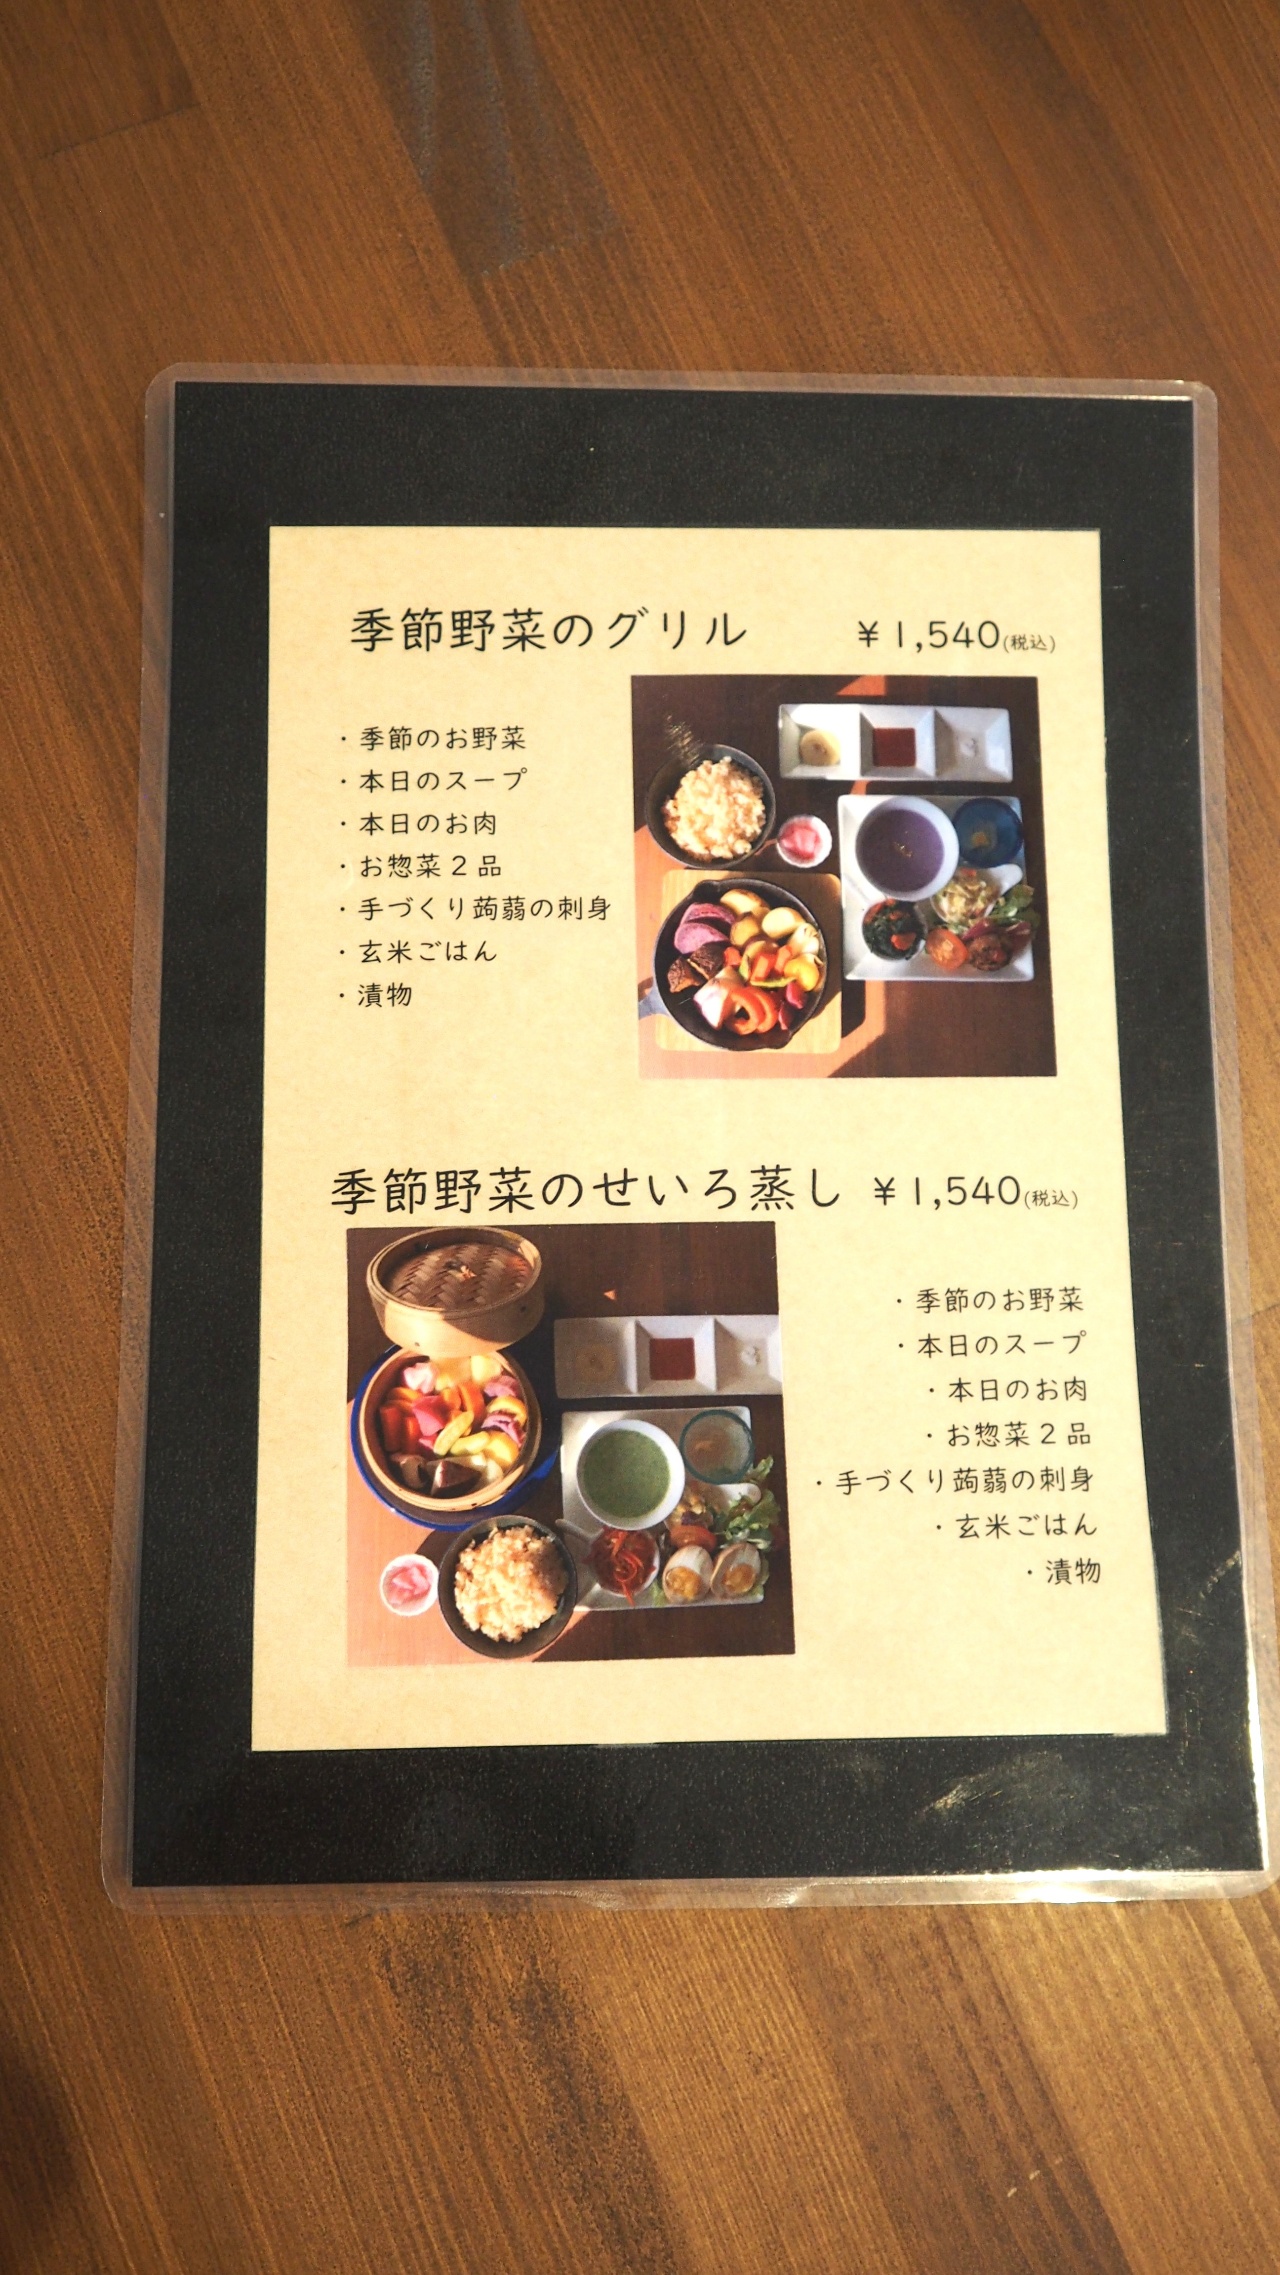 季節野菜のグリル ￥1,540(税込)
・季節のお野菜
・本日のスープ
・本日のお肉
・お惣菜２品
・手づくり蒟蒻の刺身
・玄米ごはん
・漬物
季節野菜のせいろ蒸し ￥1,540(税込)
・季節のお野菜
・本日のスープ
・本日のお肉
・お惣菜２品
・手づくり蒟蒻の刺身
・玄米ごはん
・漬物